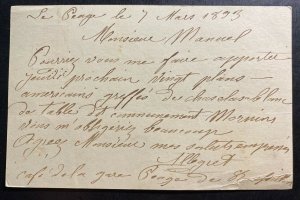 Le Péage le 7 Mars 1893
Monsieur Manuel
Pourriez vous me faire apporter
jeudi prochain vingt plans
americains greffés de chasselas blanc
de table et communement Mornins
vous m'obligerez beaucoup
Agréez Monsieur mes salutations
Allegret
café de la gare Péage de